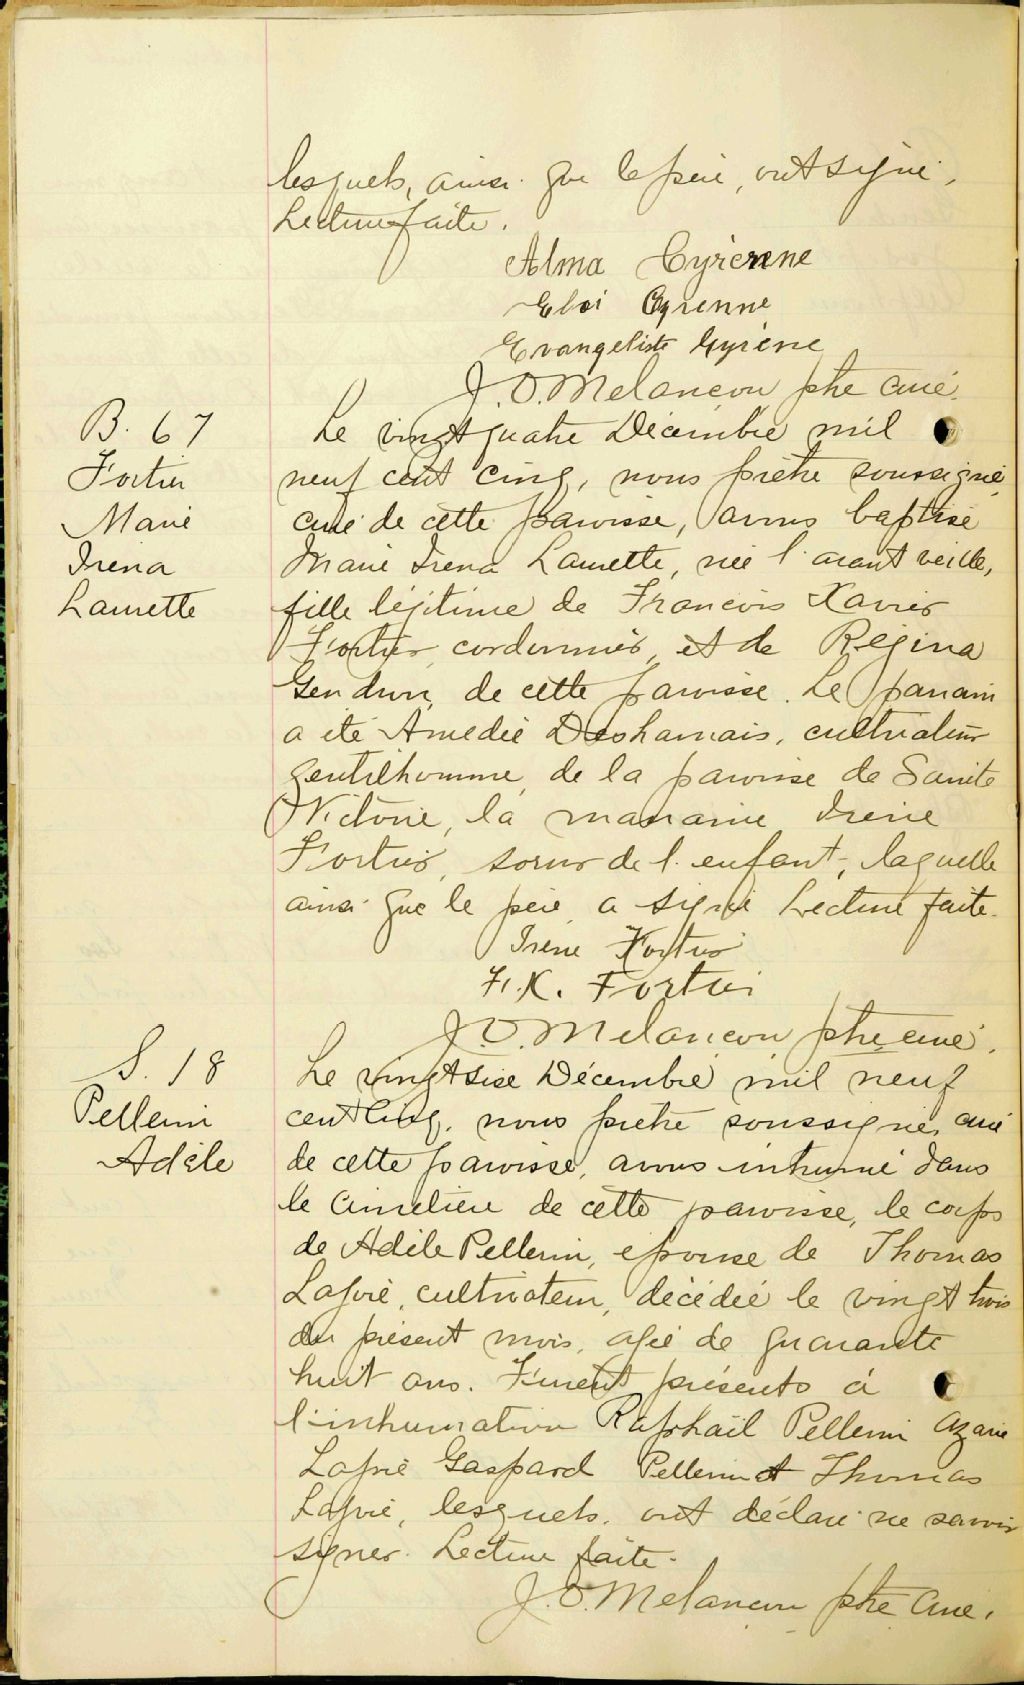 lesquels, ainsi que le père, ont signé.
Lecture faite.
Alma Cyrenne
Eloi Cyrenne
Evangeliste Cyrène
J. O. Melançon ptre curé.
B. 67
Fortier
Marie
Irena
Laurette
Le vingt quatre Décembre mil
neuf cent cinq, nous prêtre soussigné,
curé de cette paroisse, avons baptisé
Marie Irena Laurette, née l'avant veille,
fille légitime de Francois Xavier
Fortier, cordonnier, et de Régina
Gendron, de cette paroisse. Le parrain
a été Amedée Desharnais, cultivateur
gentilhomme, de la paroisse de Sainte
Victoire, la marraine Irène
Fortier, soeur de l'enfant, laquelle
ainsi que le père a signé Lecture faite.
Irene Fortier
F. X. Fortier
J. O. Melançon ptre curé.
S. 18
Pellerin
Adèle
Le vingt sise Décembre mil neuf
cent cinq, nous prêtre soussigné, curé
de cette paroisse, avons inhumé dans
le cimetière de cette paroisse, le corps
de Adèle Pellerin, epouse de Thomas
cultivateur, décédée le vingt trois
du présent mois, agée de quarante
huit ans. Furent présents à
l'inhumation Raphaël Pellerin Azarie
Gaspard Pellerin et Thomas
lesquels, ont déclaré ne savoir
signer. Lecture faite.
J. O. Melançon ptre curé.